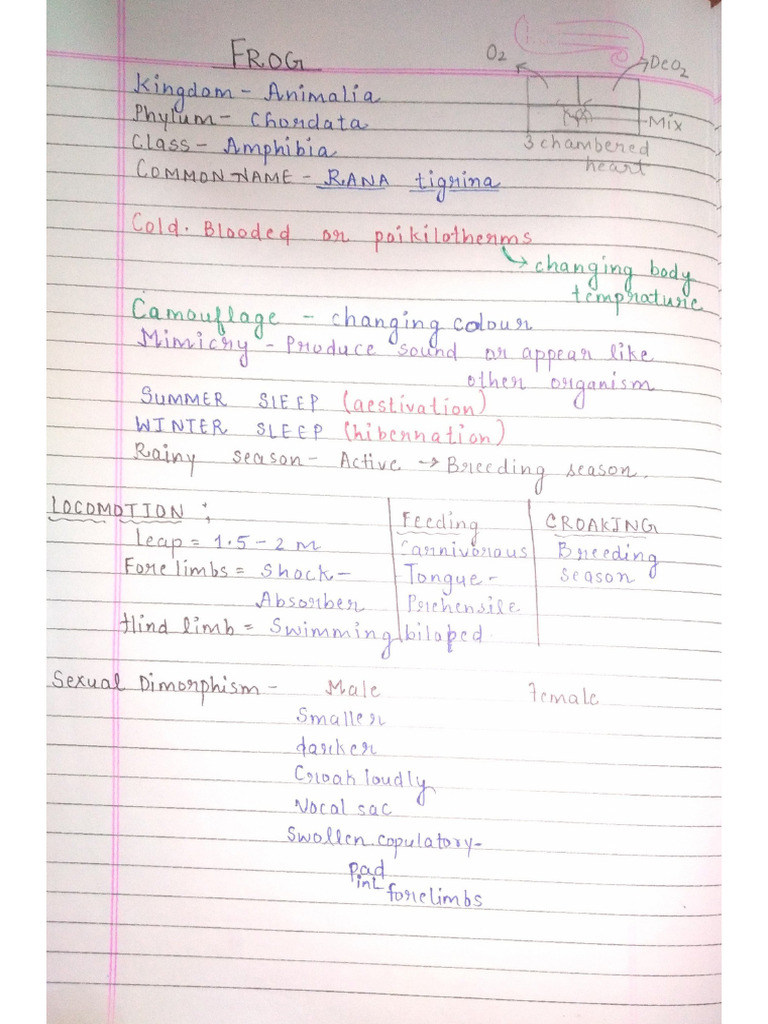 FROG
O2
DeO2
Mix
3 chambered
heart
Kingdom - Animalia
Phylum - Chordata
Class - Amphibia
COMMON NAME - RANA tigrina
Cold. Blooded or poikilotherms
changing body
temprature
Camouflage - changing colour
Mimicry - Produce sound or appear like
other organism
SUMMER SlEEP (aestivation)
WINTER SLEEP (hibernation)
Rainy season - Active → Breeding season.
LOCOMOTION :
Leap = 1.5 - 2 m
Forelimbs = Shock-
Absorber
Hind limb = Swimming
Feeding
Carnivorous
Tongue -
Prehensile
biloped
CROAKING
Breeding
season
Sexual Dimorphism - Male Female
Smaller
darker
Croak loudly
Vocal sac
Swollen copulatory-
pad
in
forelimbs